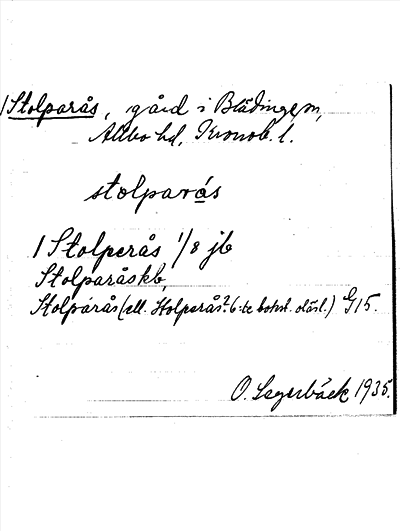 1 Stolparås, gård i Blädinge sn,
Allbo hd, Kronob. l.
stolparås
1 Stolperås 1/8 jb
Stolparås kb,
Stolparås (ell. Stolperås? 6:te bokst. oläsl.) G15.
O. Lagerbäck 1935.